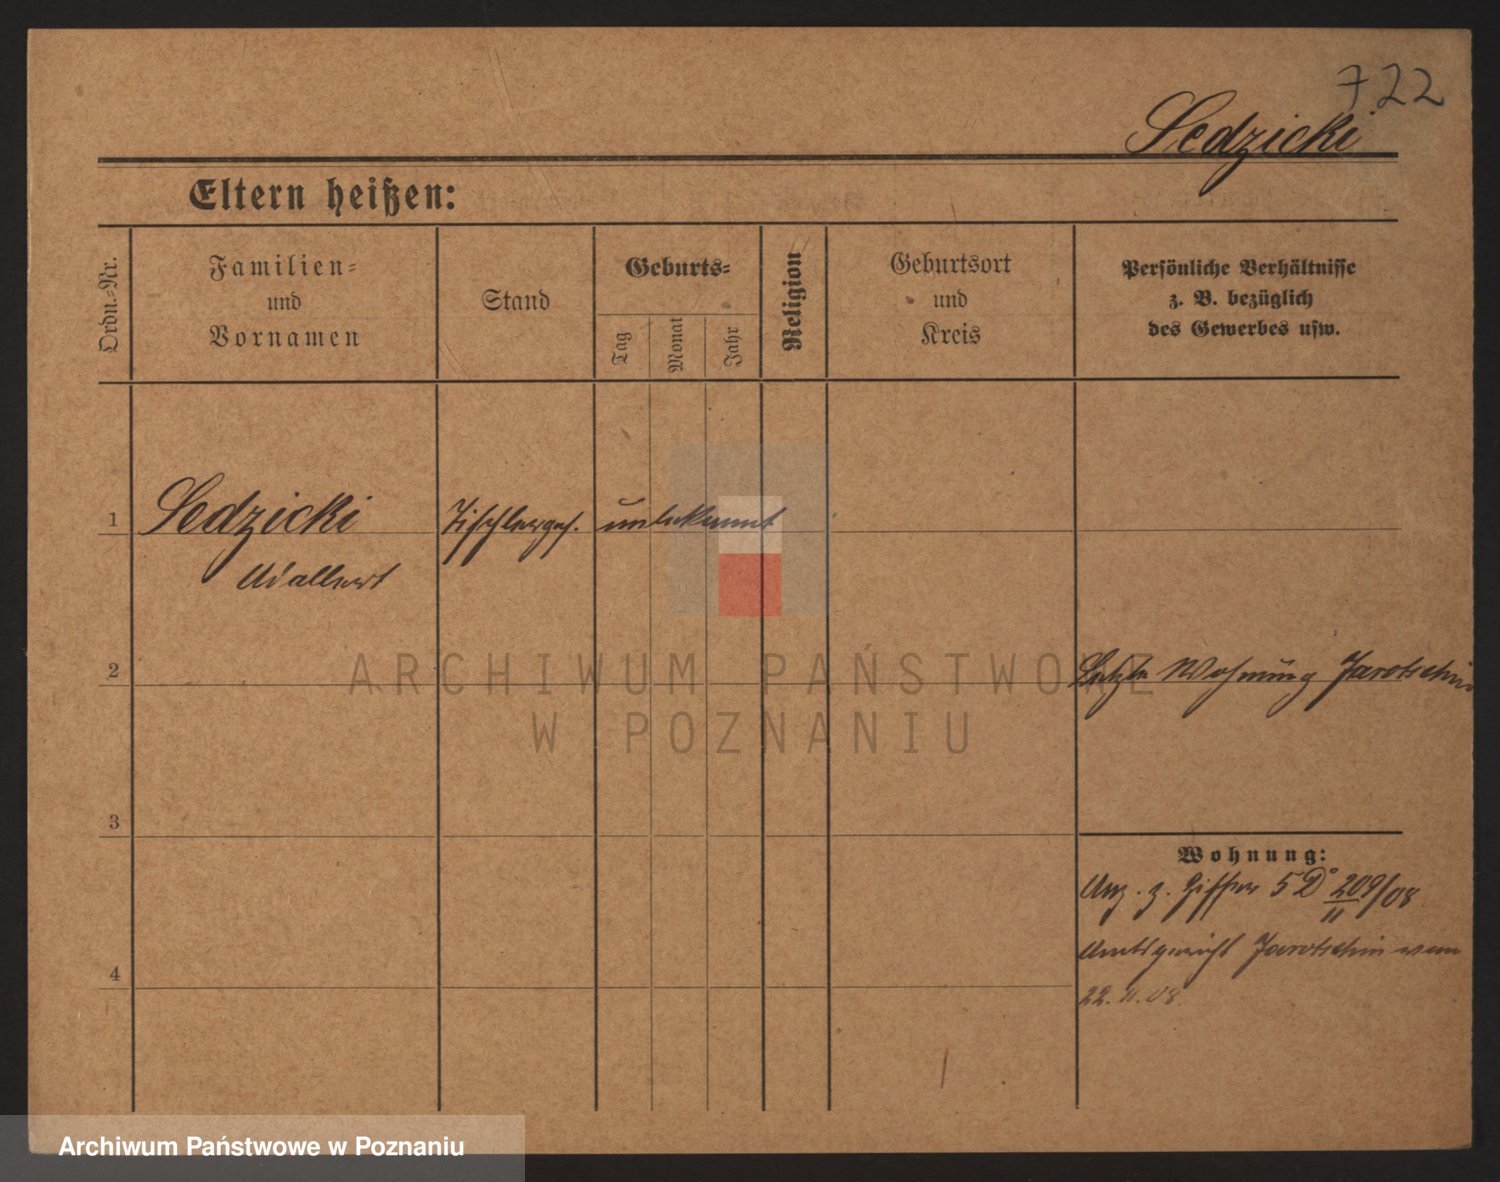 722
Sedzicki
Eltern heißen:
Ordn.-Nr.
Familien-
und
Vornamen
Stand
Geburts-
Tag
Monat
Jahr
Religion
Geburtsort
und
Kreis
Persönliche Verhältnisse
z. B. bezüglich
des Gewerbes usw.
1
Sedzicki
Tischlerges.
unbekannt
Adalbert
2
Letzte Wohnung Jarotschin
3
Wohnung:
Anz. z. Ziffer 5 D 209/08
11
4
Amtsgericht Jarotschin vom
22. 11. 08.
ARCHIWUM PAŃSTWOWE
W POZNANIU
Archiwum Państwowe w Poznaniu